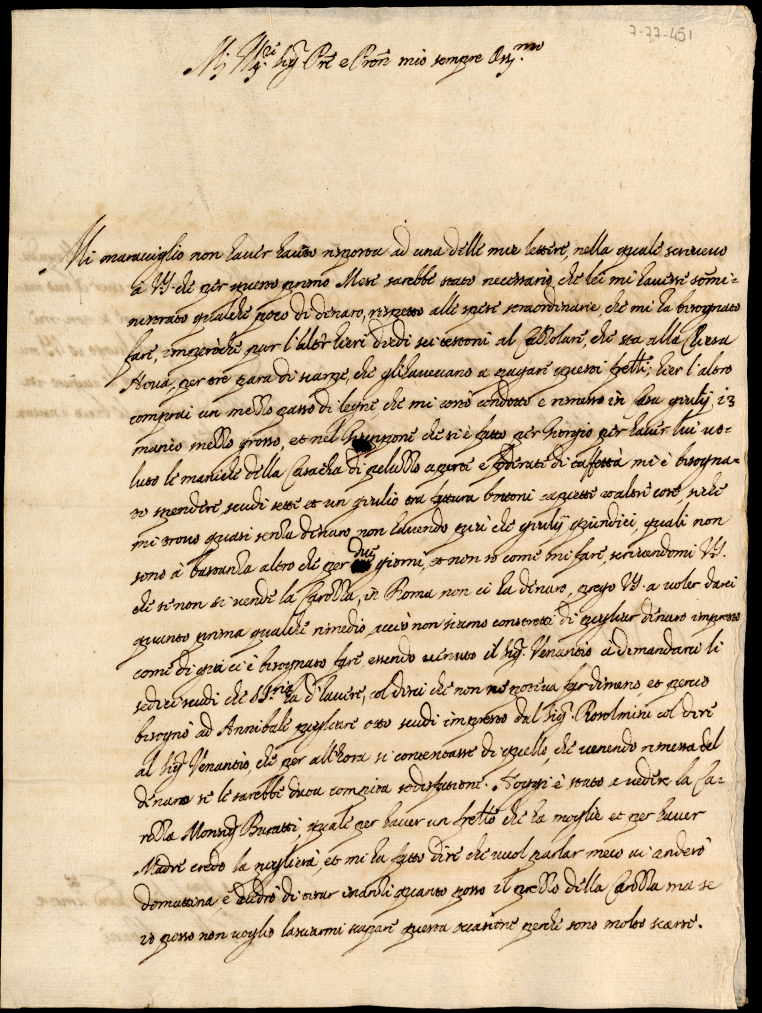 7-77-451
Sig.
e mio sempre
Mi maraviglio non haver havuto risposta ad una delle mie lettere, nella quale scrivevo
à VS. che per questo primo Mese sarebbe stato necessario, che lei mi havesse somi-
nistrato qualche poco di denaro, rispetto alle spese straordinarie, che mi hà bisognato
fare, imperòche hier l'altr'hieri diedi sei testoni al Calzolaro, che sta alla Chiesa
Nova, per tre para di scarpe, che gli havevano a pagare questi putti; hier l'altro
comprai un mezzo passo di legne che mi costò condotto e rimesso in casa giulij 23
manco mezzo grosso, et nel Giuppone che si è fatto per Giorgio per haver lui vo-
luto le maniche della Casacha di peluzzo aperte e foderate di taffettà mi è bisogna-
to spendere scudi sette et un giulio tra fattura bottoni et altre cose si che
mi trovo quasi senza denaro non havendo più che giulij quindici, quali non
sono à bastanza altro che per due giorni, et non so come mi fare, scrivendomi VS.
che se non si vende la Carozza, in Roma non ci hà denaro, prego VS. a voler darci
quanto prima qualche rimedio, acciò non siamo constretti di pigliar denaro impresto
come di già ci è bisognato fare essendo venuto il Sig. Venantio a demandare li
sedici scudi che d'havere, col dirci che non ne poteva far dimeno, et perciò
bisognò ad Annibale pigliare otto scudi impresto dal Sig. Rosolmini col dire
al Sig. Venantio, che per all'hora si contentasse di quello, che venendo rimessa del
denaro se le sarebbe data compita sodisfatione. Hoggi è stato a vedere la Ca-
rozza Monsig. Buratti, quale per haver un fratello che hà moglie et per haver
Madre credo la piglierà, et mi hà fatto dire che vuol parlar meco vi anderò
domattina e vedrò di tirar inanzi quanto posso il prezzo della Carozza ma se
io posso non voglio lasciarmi scapare questa occasione perche sono molto scarse.